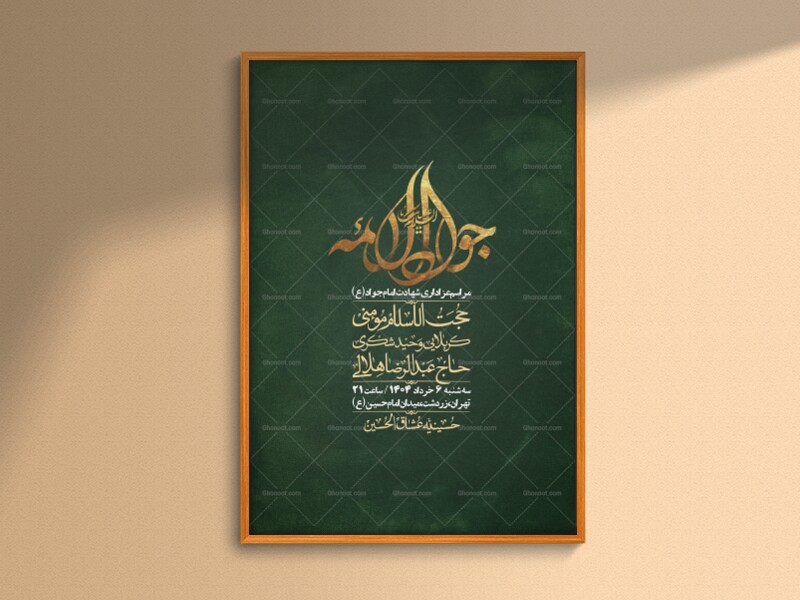 جواد الائمه
مراسم عزاداری شهادت امام جواد (ع)
حجت الاسلام مومنی
کربلایی وحید شکری
حاج عبدالرضا هلالی
سه شنبه ۶ خرداد ۱۴۰۴ / ساعت ۲۱
تهران، زردشت، میدان امام حسین (ع)
حسینیه عشاق الحسین
Ghonoot.com